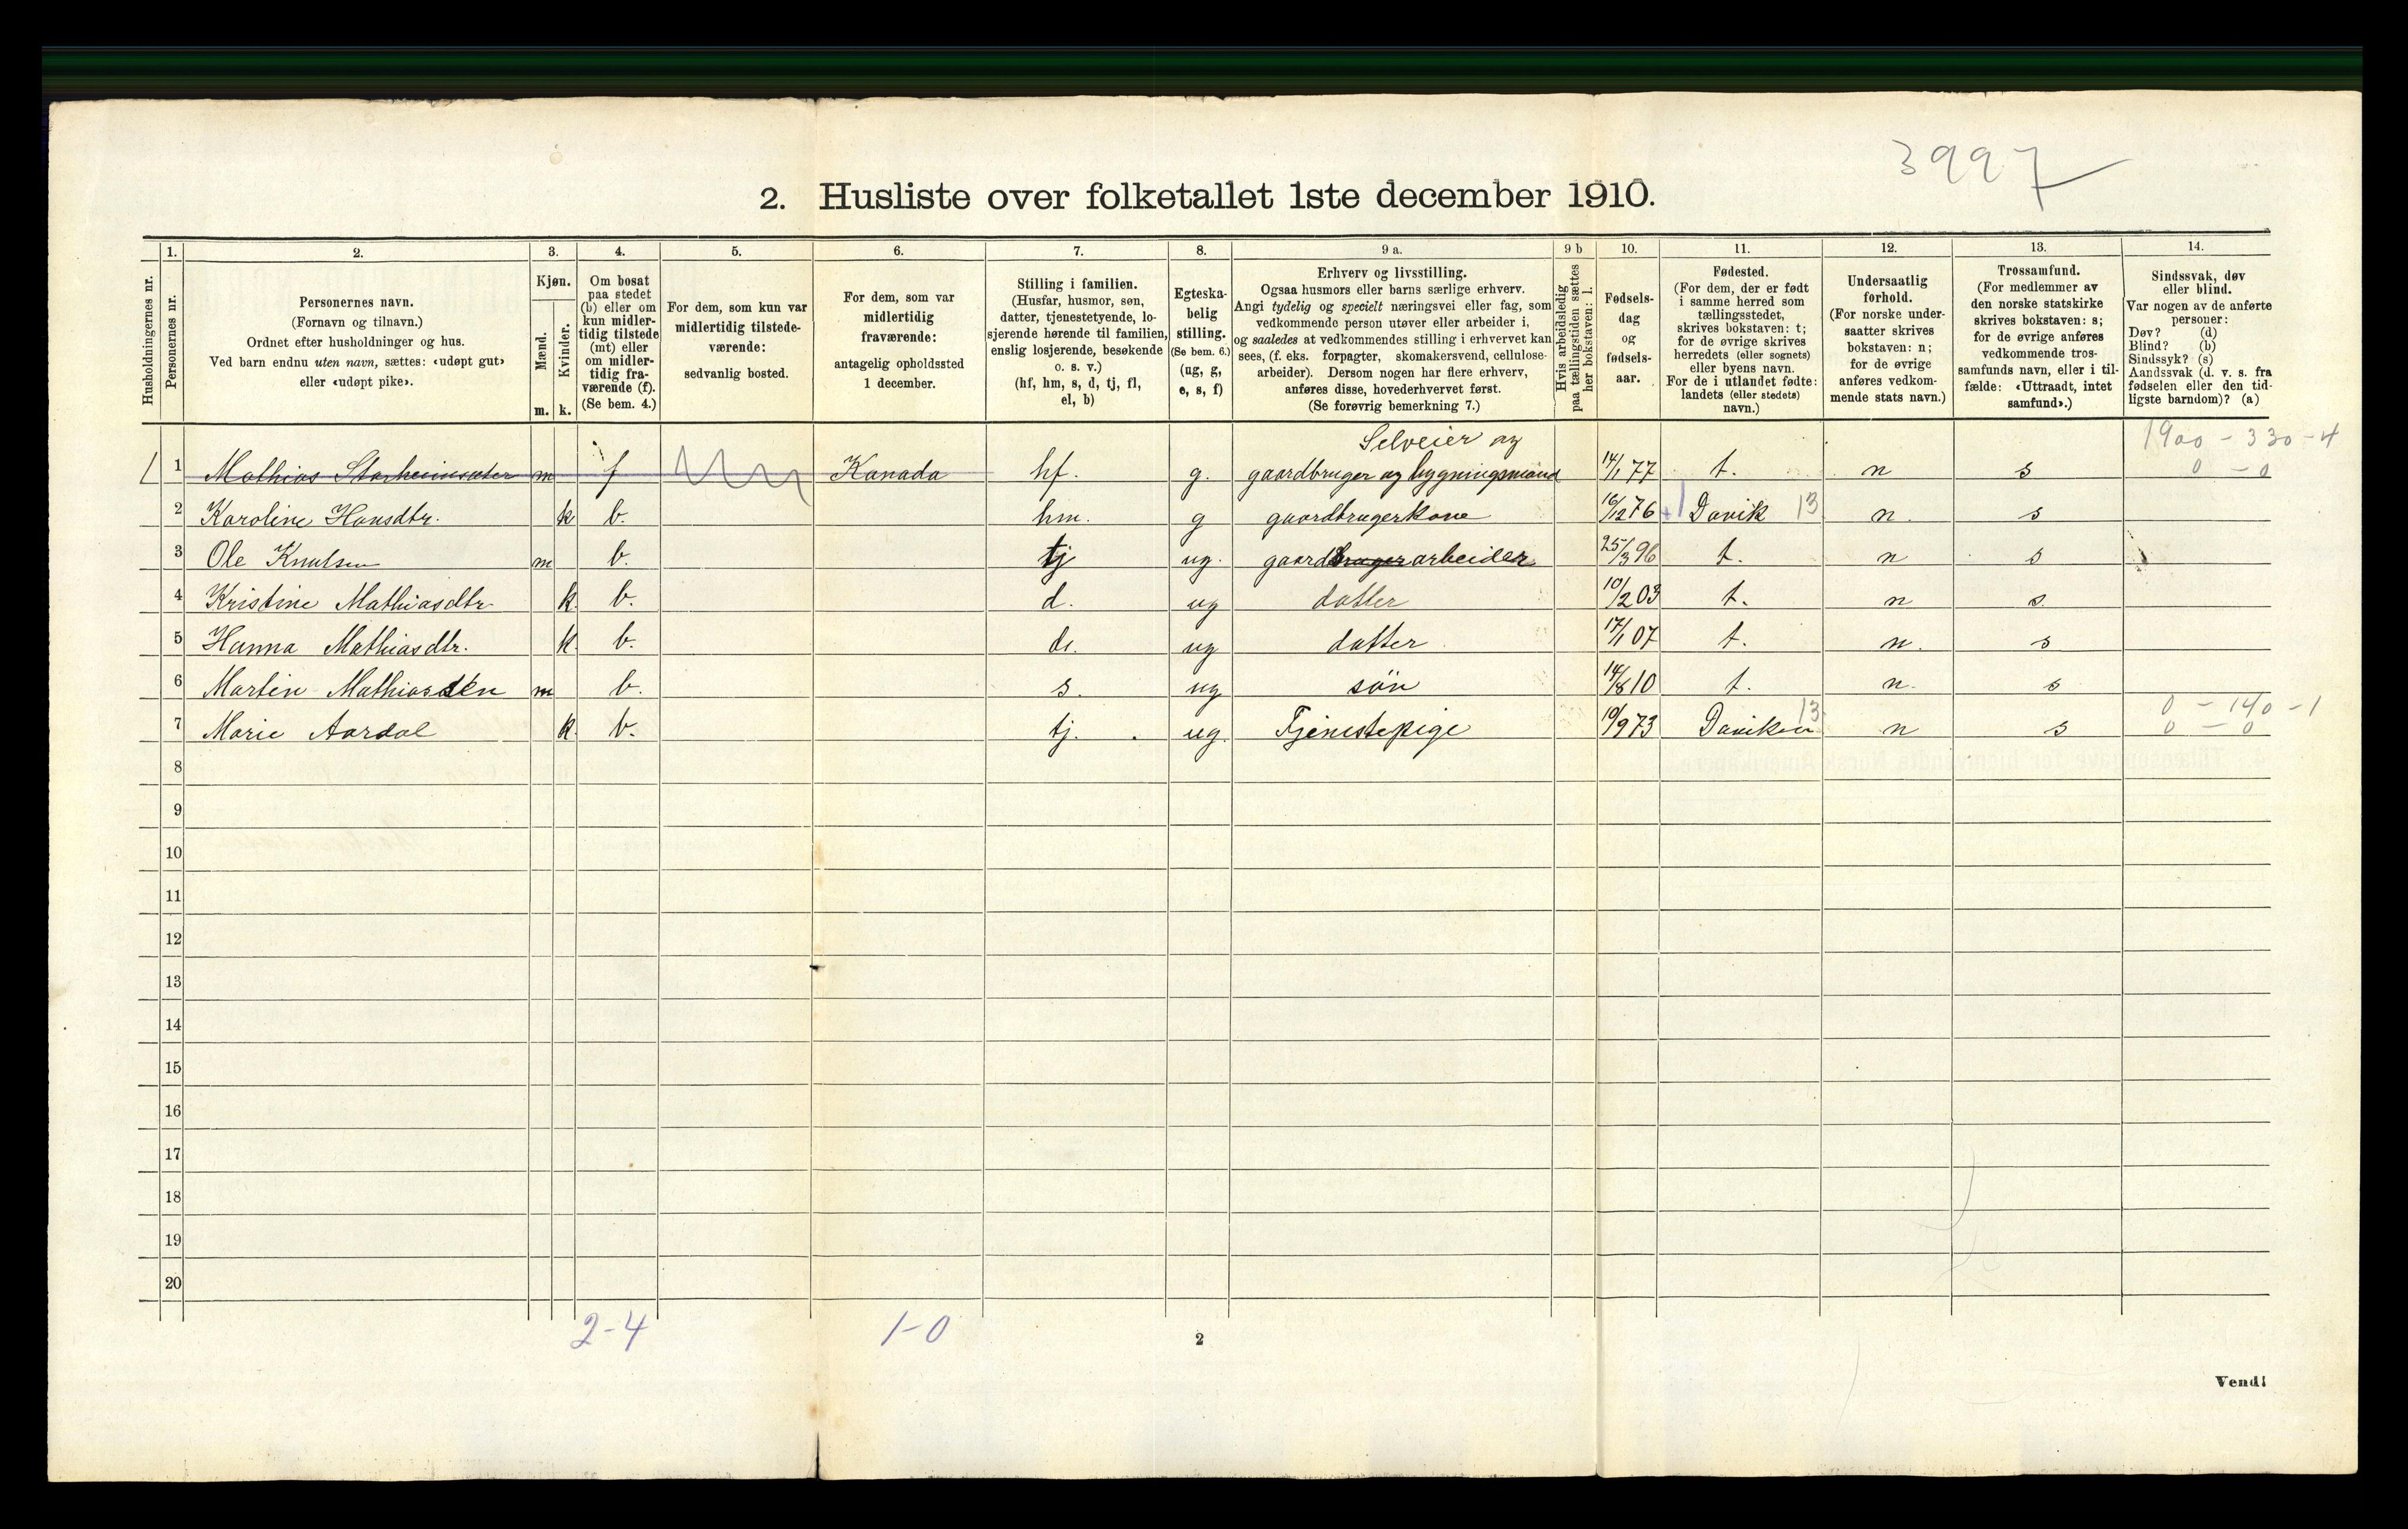 3997
2. Husliste over folketallet 1ste december 1910.
Husholdningernes nr.
1.
Personernes nr.
2.
Personernes navn.
(Fornavn og tilnavn.)
Ordnet efter husholdninger og hus.
Ved barn endnu uten navn, sættes: «udøpt gut»
eller «udøpt pike».
3.
Kjøn.
Mænd.
Kvinder.
m. k.
4.
Om bosat
paa stedet
(b) eller om
kun midler-
tidig tilstede
(mt) eller
om midler-
tidig fra-
værende (f).
(Se bem. 4.)
5.
For dem, som kun var
midlertidig tilstede-
værende:
sedvanlig bosted.
6.
For dem, som var
midlertidig
fraværende:
antagelig opholdssted
1 december.
7.
Stilling i familien.
(Husfar, husmor, søn,
datter, tjenestetyende, lo-
sjerende hørende til familien,
enslig losjerende, besøkende
o. s. v.)
(hf, hm, s, d, tj, fl,
el, b)
8.
Egteska-
belig
stilling.
(Se bem. 6.)
(ug, g,
e, s, f)
9 a.
Erhverv og livsstilling.
Ogsaa husmors eller barns særlige erhverv.
Angi tydelig og specielt næringsvei eller fag, som
vedkommende person utøver eller arbeider i,
og saaledes at vedkommendes stilling i erhvervet kan
sees, (f. eks. forpagter, skomakersvend, cellulose-
arbeider). Dersom nogen har flere erhverv,
anføres disse, hovederhvervet først.
(Se forøvrig bemerkning 7.)
9 b
Hvis arbeidsledig
paa tællingstiden sættes
her bokstaven: l.
10.
Fødsels-
dag
og
fødsels-
aar.
11.
Fødested.
(For dem, der er født
i samme herred som
tællingsstedet,
skrives bokstaven: t;
for de øvrige skrives
herredets (eller sognets)
eller byens navn.
For de i utlandet fødte:
landets (eller stedets)
navn.)
12.
Undersaatlig
forhold.
(For norske under-
saatter skrives
bokstaven: n;
for de øvrige
anføres vedkom-
mende stats navn.)
13.
Trossamfund.
(For medlemmer av
den norske statskirke
skrives bokstaven: s;
for de øvrige anføres
vedkommende tros-
samfunds navn, eller i til-
fælde: «Uttraadt, intet
samfund».)
14.
Sindssvak, døv
eller blind.
Var nogen av de anførte
personer:
Døv? (d)
Blind? (b)
Sindssyk? (s)
Aandssvak (d. v. s. fra
fødselen eller den tid-
ligste barndom)? (a)
Selveier og 1900 - 330 - 4
1 1 Mathias Starheimsæter m f Kanada hf. g. gaardbruger og bygningsmand 14/1 77 t. n s 0 - 0
2 Karoline Hansdtr. k b. hm. g gaardbrugerkone 16/12 76 Davik 13 n. s
3 Ole Knutsen m b. tj ug. gaardbruger arbeider 25/3 96 t. n s
4 Kristine Mathiasdtr k b. d. ug datter 10/2 03 t. n s
5 Hanna Mathiasdtr. k b. d. ug datter 17/1 07 t. n. s
6 Martin Mathiassen m b. s. ug søn 14/8 10 t. n. s
0 - 140 - 1
7 Marie Aardal k b. tj. ug. Tjenestepige 10/9 73 Daviken 13 n s 0 - 0
8
9
10
11
12
13
14
15
16
17
18
19
20
2-4 1-0 2
Vend!